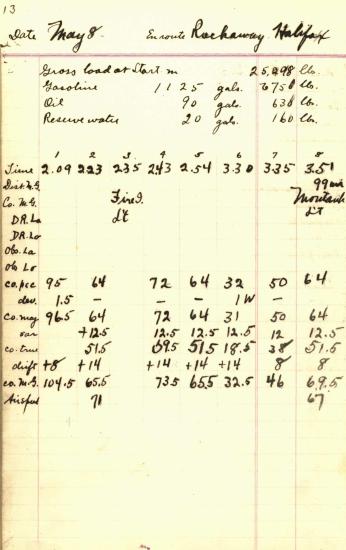 13
Date May 8 Enroute Rockaway Halifax
Gross load at Start in 25,998 lb.
Gasoline 1125 gals. 6750 lb.
Oil 90 gal. 630 lb.
Reserve water 20 gal. 160 lb.
1 2 3 4 5 6 7 8
Time 2.09 223 235 243 2.54 3.30 3.35 3.51
Dist M.G. 99
Co. M.G. Fire I. Montauk
DR. La Lt Lt
DR. Lo
Obs. La
Ob Lo
co. pcc 95 64 72 64 32 50 64
dev. 1.5 — — — 1W — —
co. mag 96.5 64 72 64 31 50 64
var +12.5 12.5 12.5 12.5 12 12.5
co. true 51.5 59.5 51.5 18.5 38 51.5
drift +8 +14 +14 +14 +14 8 8
co. M.G. 104.5 65.5 73.5 65.5 32.5 46 69.5
Airspeed 71 67